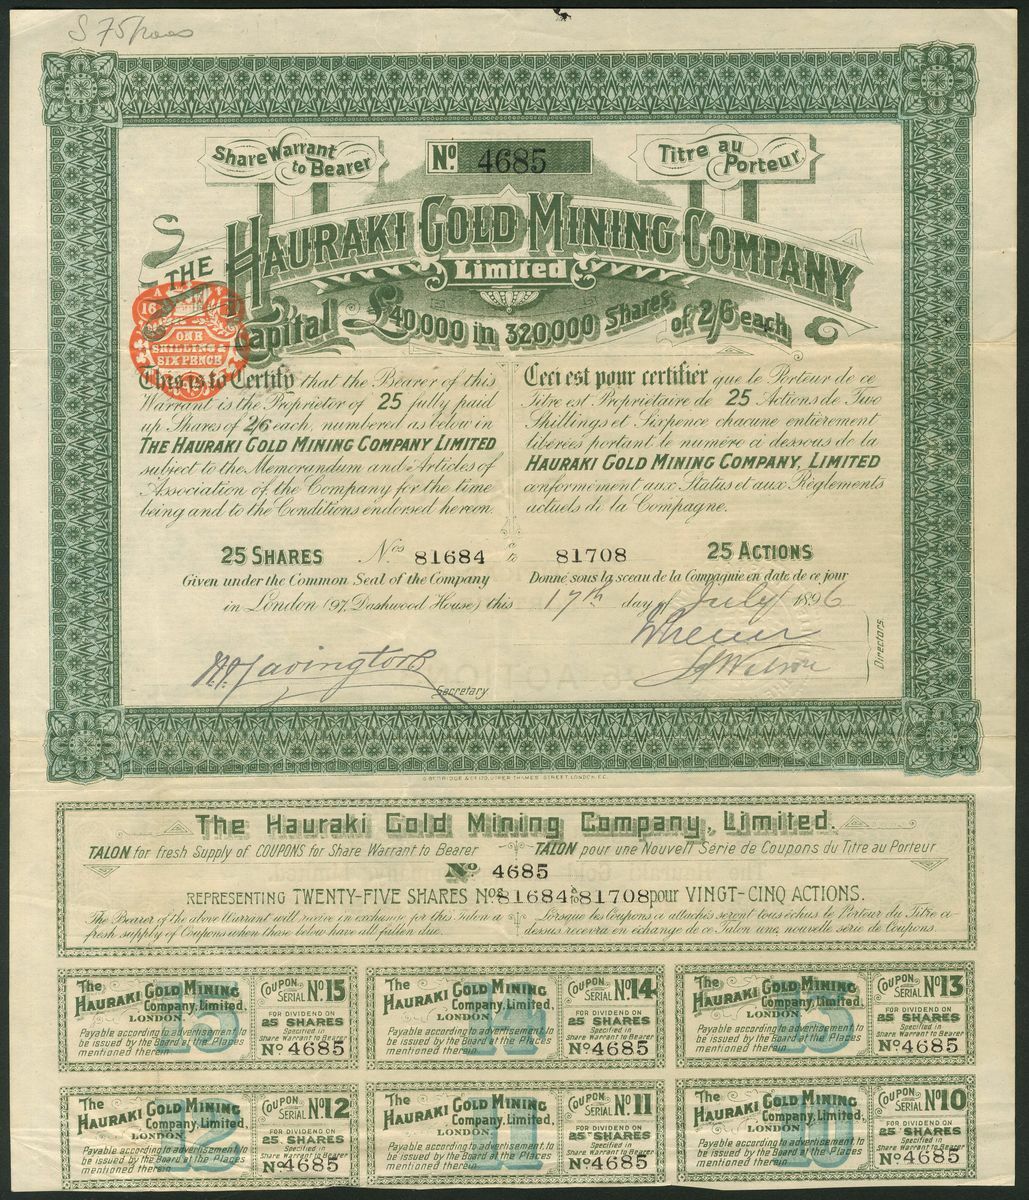 Share Warrant to Bearer
Nº. 4685
Titre au Porteur
THE HAURAKI GOLD MINING COMPANY
Limited
Capital £40,000 in 320,000 Shares of 2/6 each
ONE
SHILLING &
SIXPENCE
This is to Certify that the Bearer of this
Warrant is the Proprietor of 25 fully paid
up Shares of 2/6 each, numbered as below in
THE HAURAKI GOLD MINING COMPANY LIMITED
subject to the Memorandum and Articles of
Association of the Company for the time
being and to the Conditions endorsed hereon.
Ceci est pour certifier que le Porteur de ce
Titre est Propriétaire de 25 Actions de Two
Shillings et Sixpence chacune entièrement
libérées portant le numéro ci dessous de la
HAURAKI GOLD MINING COMPANY, LIMITED
conformément aux Status et aux Règlements
actuels de la Compagne.
25 SHARES Nos 81684 à to 81708 25 ACTIONS
Given under the Common Seal of the Company Donné sous la sceau de la Compagnie en date de ce jour
in London (97, Dashwood House) this 17th day of July 1896
Directors.
Secretary
UPPER THAMES STREET, LONDON, E.C.
The Hauraki Gold Mining Company, Limited.
TALON for fresh Supply of COUPONS for Share Warrant to Bearer
TALON pour une Nouvell Série de Coupons du Titre au Porteur
Nº 4685
REPRESENTING TWENTY-FIVE SHARES Nos 81684 à to 81708 pour VINGT-CINQ ACTIONS.
The Bearer of the above Warrant will receive in exchange for this Talon a
fresh supply of Coupons when those below have all fallen due.
Lorsque les Coupons ci attachés seront tous échus le Porteur du Titre ci-
dessus recevra en échange de ce Talon une, nouvelle série de Coupons.
The
HAURAKI GOLD MINING
Company, Limited.
LONDON.
Payable according to advertisement to
be issued by the Board at the Places
mentioned therein.
15
COUPON SERIAL Nº 15
FOR DIVIDEND ON
25 SHARES
Specified in
Share Warrant to Bearer
Nº 4685
The
HAURAKI GOLD MINING
Company, Limited.
LONDON.
Payable according to advertisement to
be issued by the Board at the Places
mentioned therein.
14
COUPON SERIAL Nº 14
FOR DIVIDEND ON
25 SHARES
Specified in
Share Warrant to Bearer
Nº 4685
The
HAURAKI GOLD MINING
Company, Limited.
LONDON.
Payable according to advertisement to
be issued by the Board at the Places
mentioned therein.
13
COUPON SERIAL Nº 13
FOR DIVIDEND ON
25 SHARES
Specified in
Share Warrant to Bearer
Nº 4685
The
HAURAKI GOLD MINING
Company, Limited.
LONDON.
Payable according to advertisement to
be issued by the Board at the Places
mentioned therein
12
COUPON SERIAL Nº 12
FOR DIVIDEND ON
25 SHARES
Specified in
Share Warrant to Bearer
Nº 4685
The
HAURAKI GOLD MINING
Company, Limited.
LONDON.
Payable according to advertisement to
be issued by the Board at the Places
mentioned therein.
11
COUPON SERIAL Nº 11
FOR DIVIDEND ON
25 SHARES
Specified in
Share Warrant to Bearer
Nº 4685
The
HAURAKI GOLD MINING
Company, Limited.
LONDON.
Payable according to advertisement to
be issued by the Board at the Places
mentioned therein.
10
COUPON SERIAL Nº 10
FOR DIVIDEND ON
25 SHARES
Specified in
Share Warrant to Bearer
Nº 4685